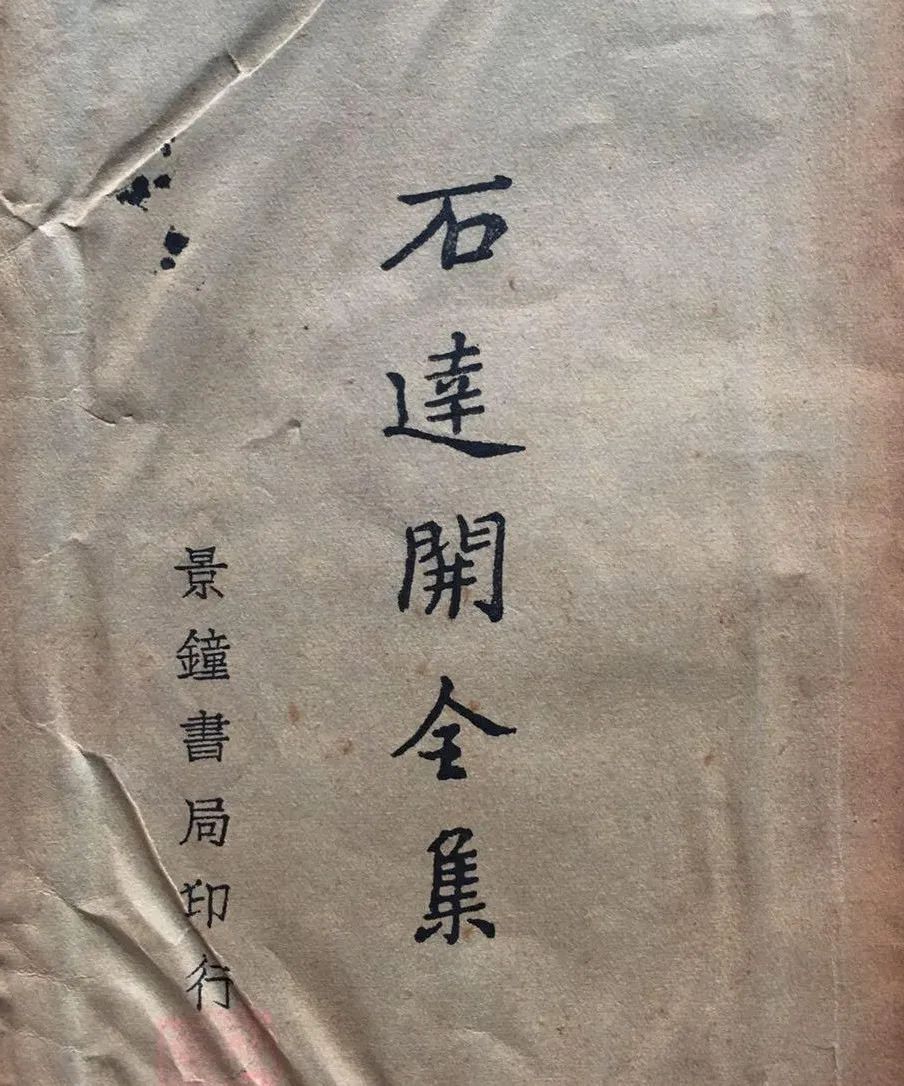 石達開全集
景鐘書局印行